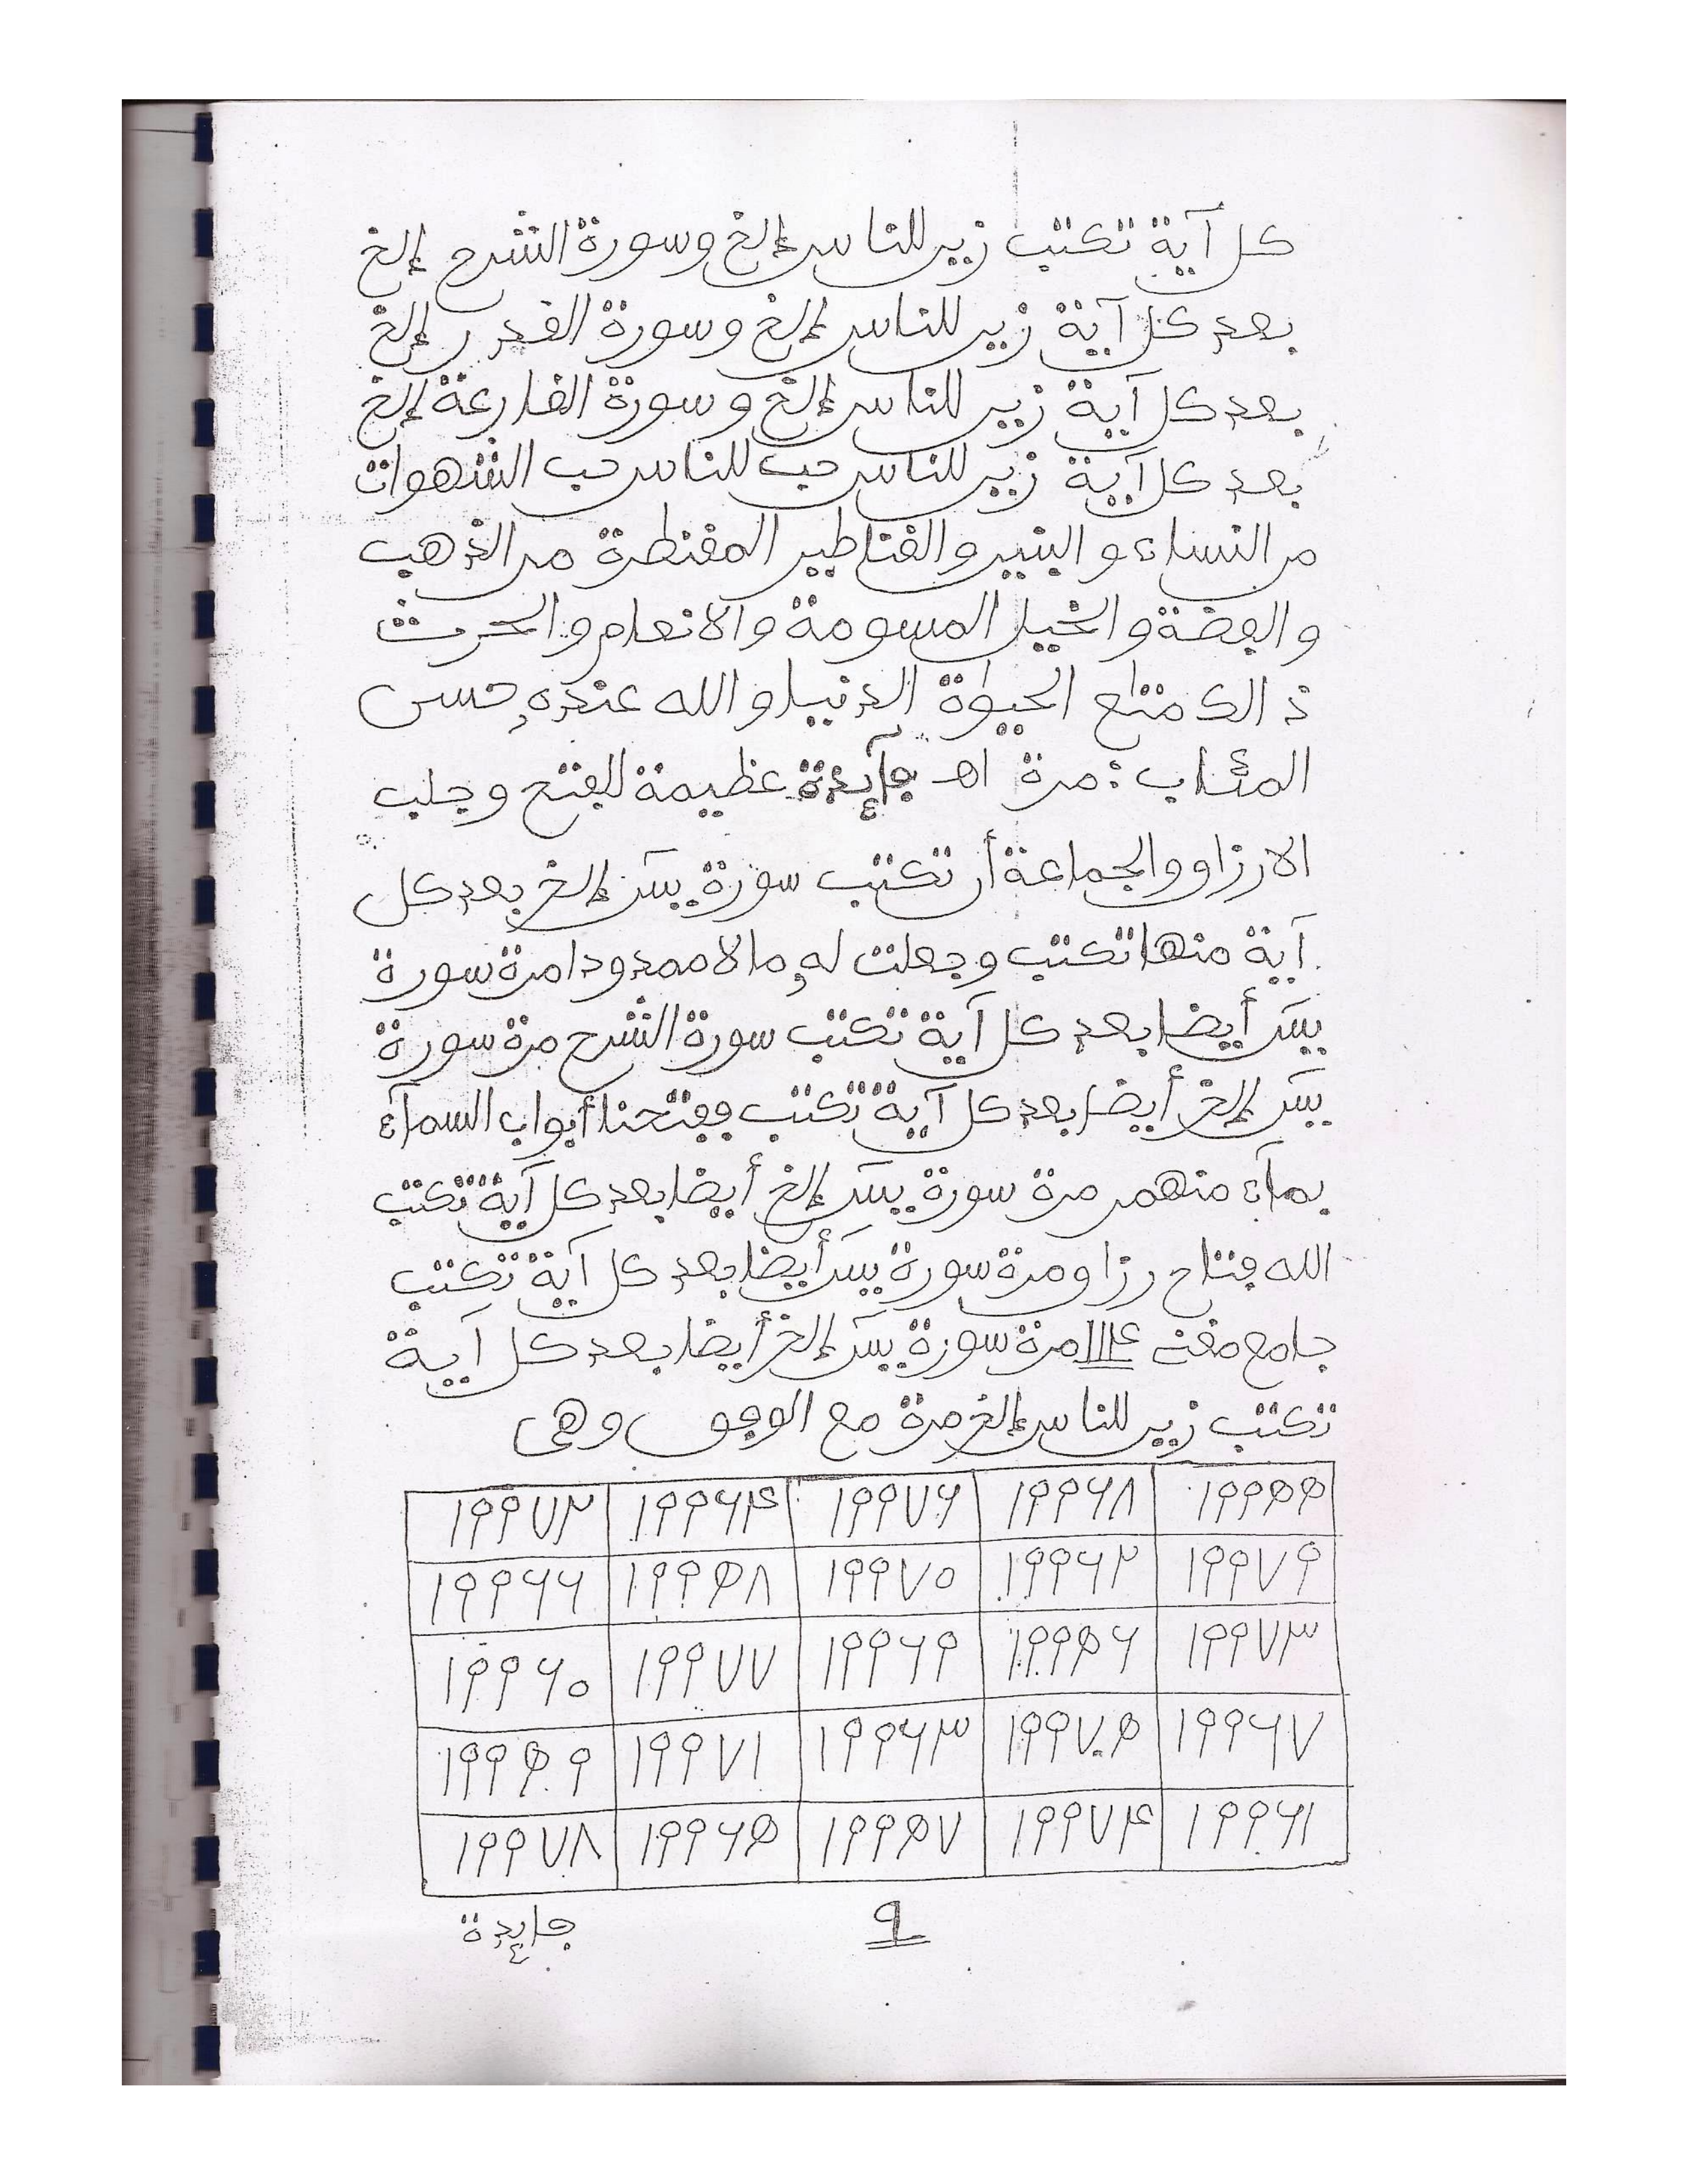 كل آية تكتب زين للناس إلخ وسورة الشرح إلخ
بعد كل آية زين للناس إلخ وسورة القدر إلخ
بعد كل آية زين للناس إلخ وسورة القارعة إلخ
بعد كل آية زين للناس حب للناس حب الشهوات
من النساء والبنين والقناطير المقنطرة من الذهب
والفضة والخيل المسومة والانعام والحرث
ذالك متاع الحيوة الدنيا والله عنده حسن
المئاب : مرة اهـ فايدة عظيمة للفتح وجلب
الارزاق والجماعة أن تكتب سورة يس إلخ بعد كل
آية منها تكتب وجعلت له مالا ممدودا مرة سورة
يس أيضا بعد كل آية تكتب سورة الشرح مرة سورة
يس إلخ أيضا بعد كل آية تكتب ففتحنا أبواب السمآء
بمآء منهمر مرة سورة يس إلخ أيضا بعد كل آية تكتب
الله فتاح رزاق مرة سورة يس أيضا بعد كل آية تكتب
جامع مغنى ١١١٤ مرة سورة يس إلخ أيضا بعد كل آية
تكتب زين للناس إلخ مرة مع الوفق وهى
١٩٩٥٥ ١٩٩٦٨ ١٩٩٧٦ ١٩٩٦٤ ١٩٩٧٢
١٩٩٧٩ ١٩٩٦٢ ١٩٩٧٠ ١٩٩٥٨ ١٩٩٦٦
١٩٩٧٣ ١٩٩٥٦ ١٩٩٦٩ ١٩٩٧٧ ١٩٩٦٠
١٩٩٦٧ ١٩٩٧٥ ١٩٩٦٣ ١٩٩٧١ ١٩٩٥٩
١٩٩٦١ ١٩٩٧٤ ١٩٩٥٧ ١٩٩٦٥ ١٩٩٧٨
٩
فايدة